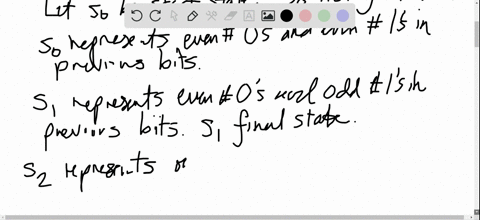 Let S0 be
S0 represents even # 0s and even # 1's in
previous bits.
S1 represents even # 0's and odd # 1's in
previous bits. S1 final state.
S2 represents